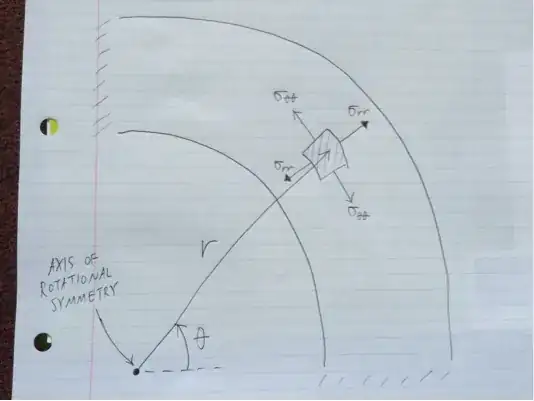 σθθ
σrr
σrr
σθθ
r
AXIS OF
ROTATIONAL
SYMMETRY
θ